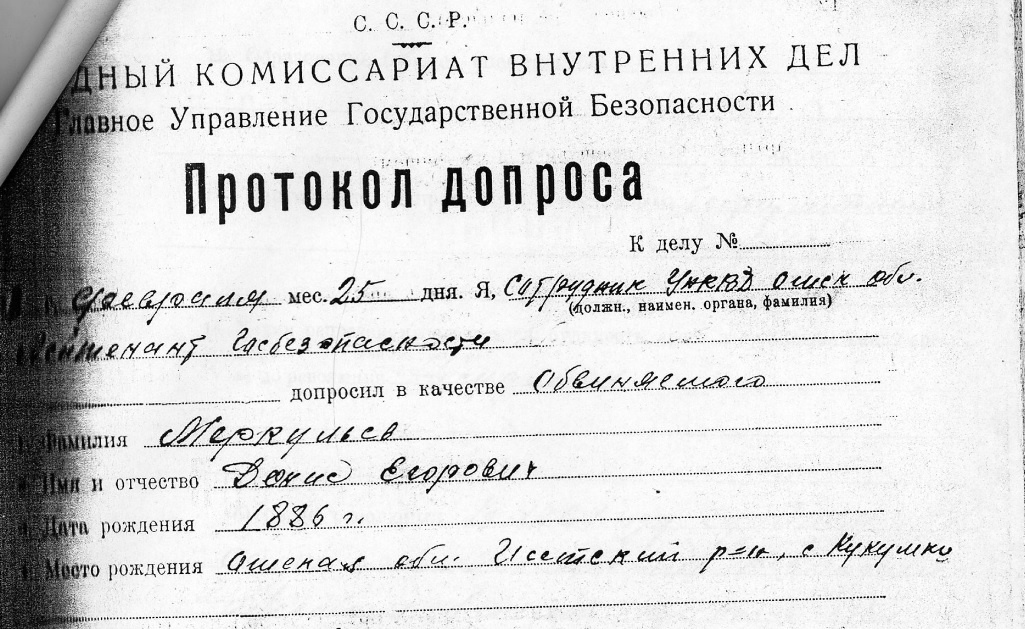 С. С. С. Р.
ДНЫЙ КОМИССАРИАТ ВНУТРЕННИХ ДЕЛ
Главное Управление Государственной Безопасности
Протокол допроса
К делу №
февраля мес. 25 дня. Я, Сотрудник УНКВД Омск обл.
(должн., наимен. органа, фамилия)
лейтенант Госбезопасности
допросил в качестве Обвиняемого
1. Фамилия Меркульев
Имя и отчество Денис Егорович
Дата рождения 1886 г.
Место рождения Омская обл. Исетский р-н, с